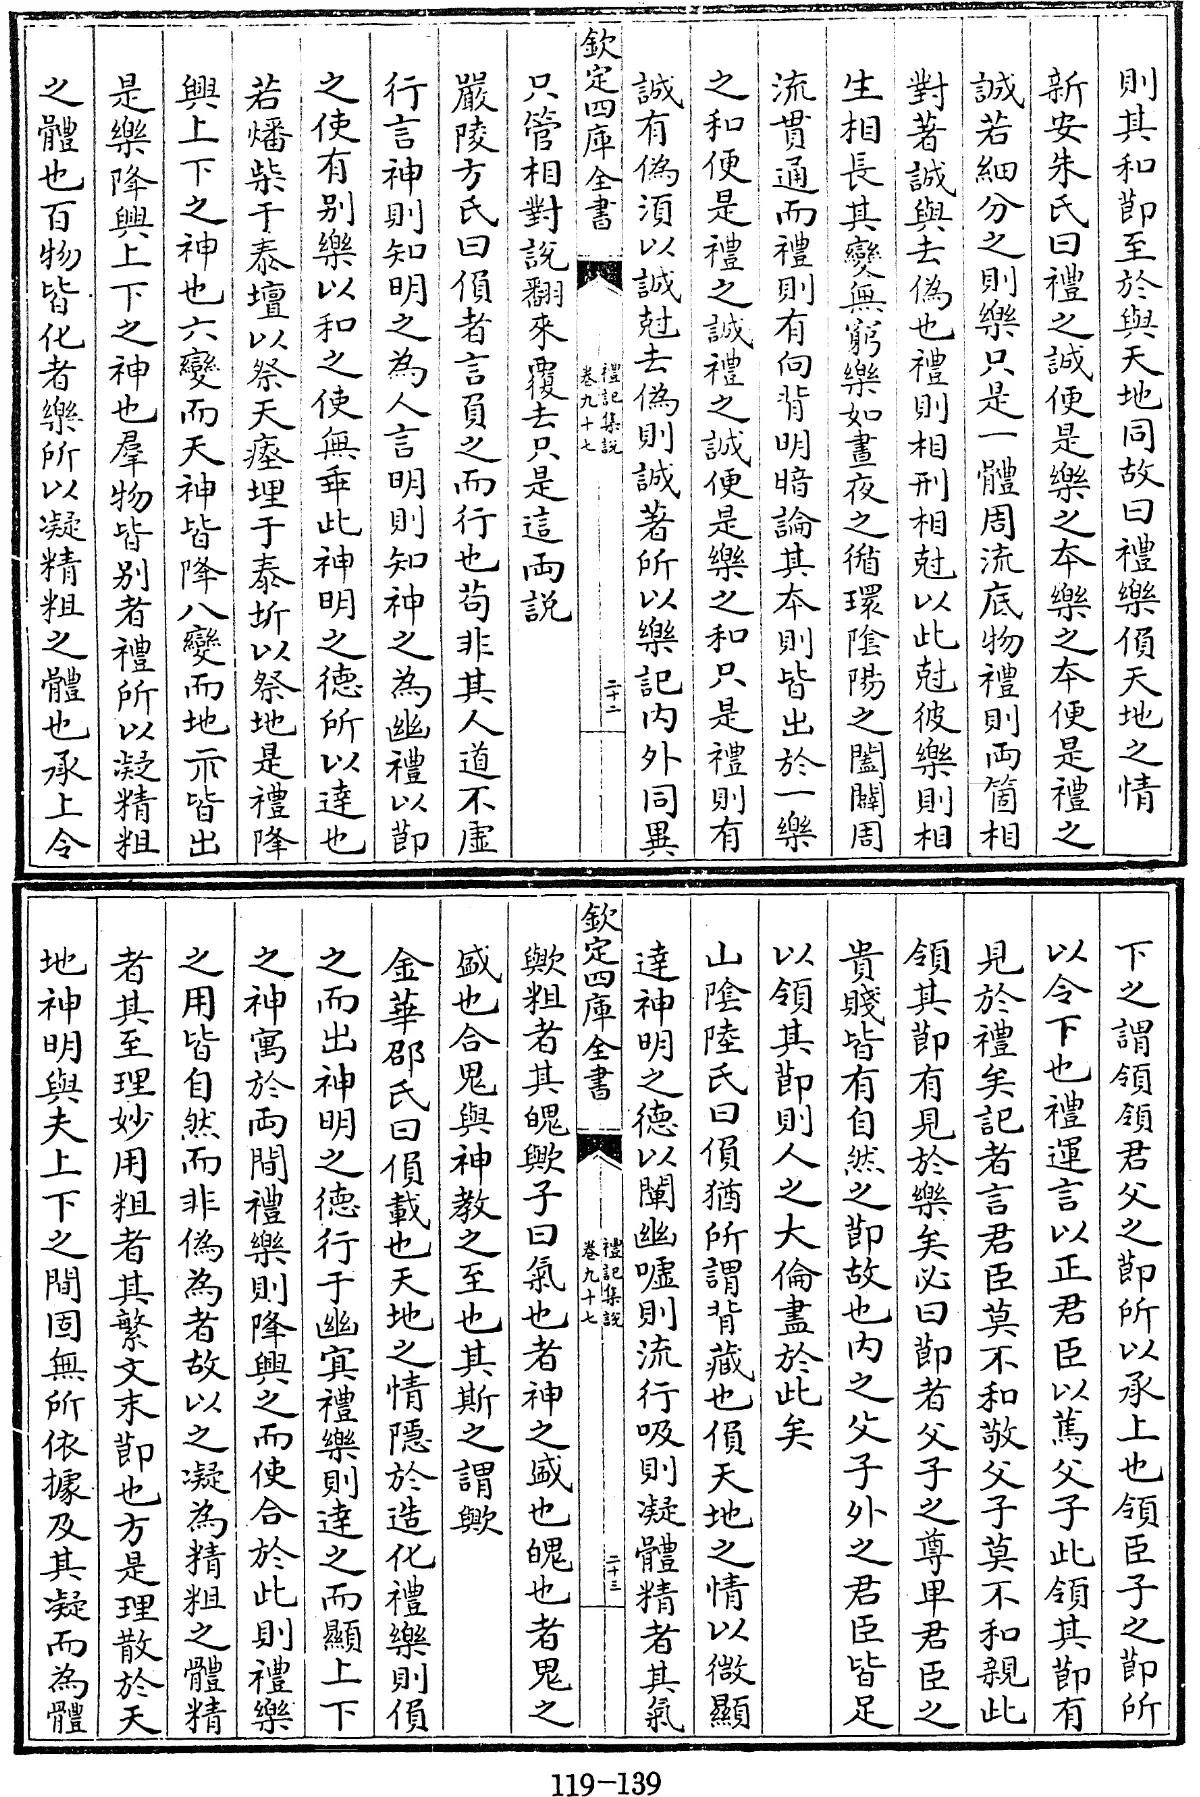 則其和節至於與天地同故曰禮樂偩天地之情
新安朱氏曰禮之誠便是樂之本樂之本便是禮之
誠若細分之則樂只是一體周流底物禮則兩箇相
對著誠與去偽也禮則相刑相尅以此尅彼樂則相
生相長其變無窮樂如晝夜之循環陰陽之闔闢周
流貫通而禮則有向背明暗論其本則皆出於一樂
之和便是禮之誠禮之誠便是樂之和只是禮則有
誠有偽須以誠尅去偽則誠著所以樂記内外同異
欽定四庫全書
禮記集說
卷九十七
二十二
只管相對說翻來覆去只是這兩説
嚴陵方氏曰偩者言負之而行也苟非其人道不虛
行言神則知明之為人言明則知神之為幽禮以節
之使有别樂以和之使無乖此神明之德所以達也
若燔柴于泰壇以祭天瘞埋于泰折以祭地是禮降
興上下之神也六變而天神皆降八變而地示皆出
是樂降興上下之神也羣物皆别者禮所以凝精粗
之體也百物皆化者樂所以凝精粗之體也承上令
下之謂領領君父之節所以承上也領臣子之節所
以令下也禮運言以正君臣以篤父子此領其節有
見於禮矣記者言君臣莫不和敬父子莫不和親此
領其節有見於樂矣必曰節者父子之尊卑君臣之
貴賤皆有自然之節故也内之父子外之君臣皆足
以領其節則人之大倫盡於此矣
山陰陸氏曰偩猶所謂背藏也偩天地之情以微顯
達神明之德以闡幽噓則流行吸則凝體精者其氣
欽定四庫全書
禮記集說
卷九十七
二十三
歟粗者其魄歟子曰氣也者神之盛也魄也者鬼之
盛也合鬼與神教之至也其斯之謂歟
金華邵氏曰偩載也天地之情隱於造化禮樂則偩
之而出神明之德行于幽冥禮樂則達之而顯上下
之神寓於兩間禮樂則降興之而使合於此則禮樂
之用皆自然而非偽為者故以之凝為精粗之體精
者其至理妙用粗者其繁文末節也方是理散於天
地神明與夫上下之間固無所依據及其凝而為體
119-139